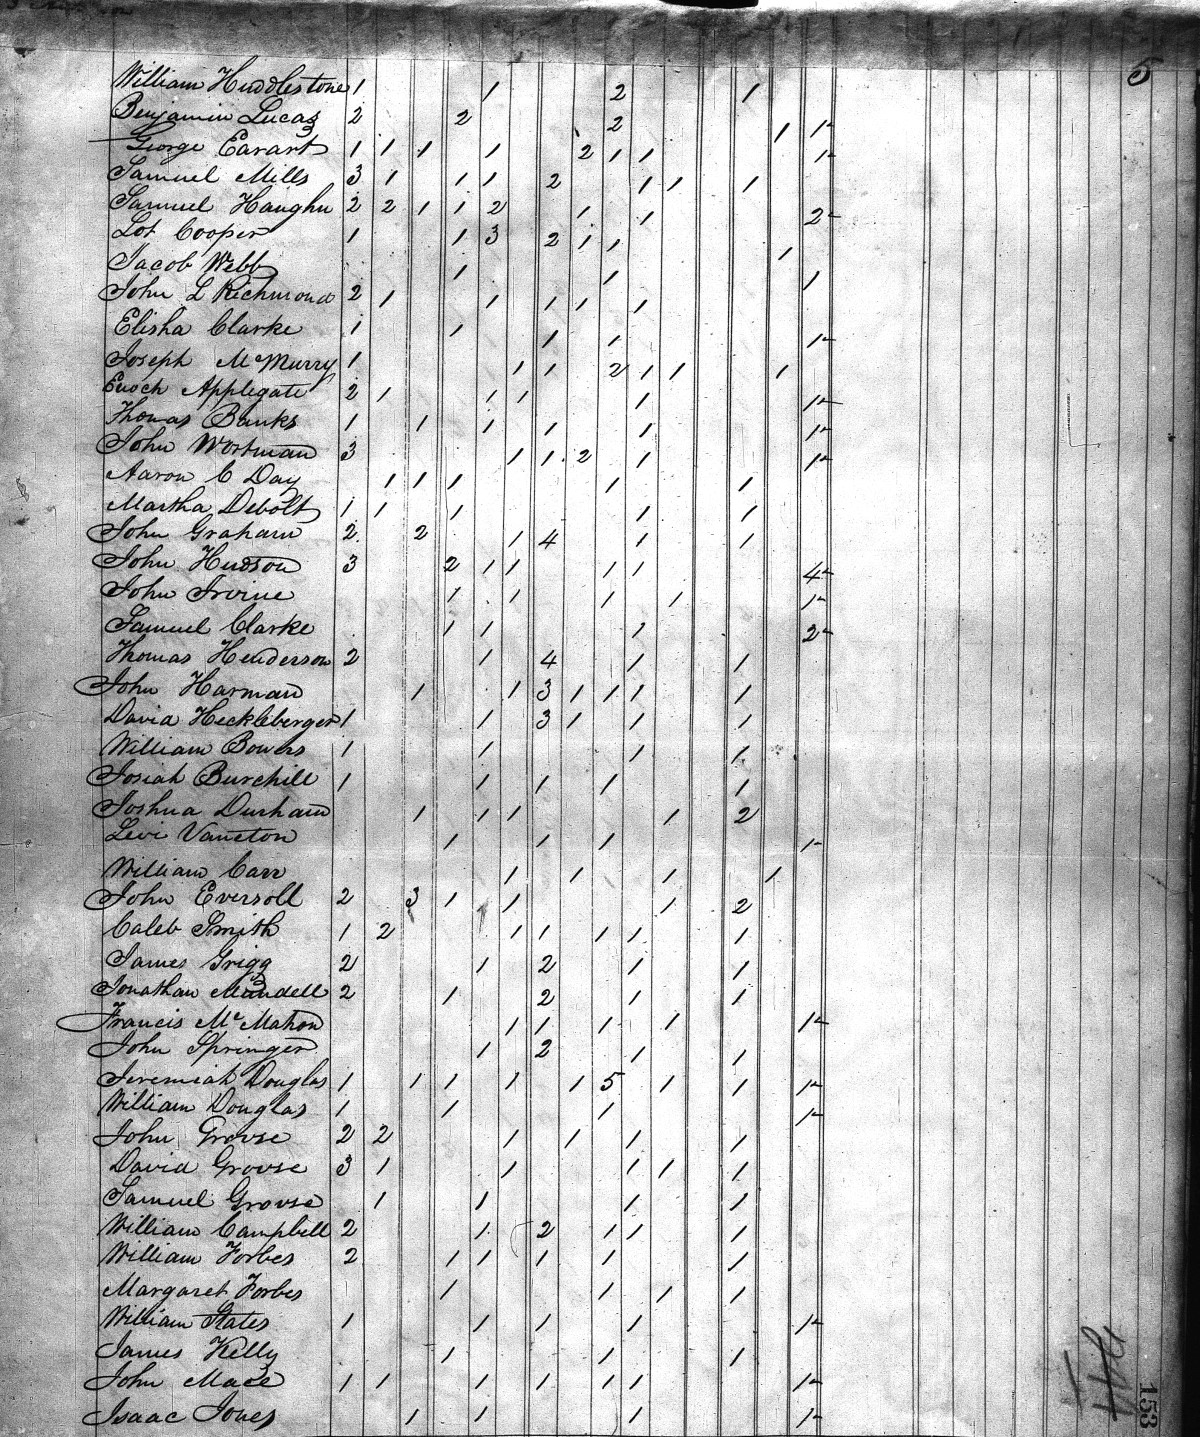 5
William Huddlestone 1 1 2 1
Benjamin Lucas 2 2 2 1 1
George Earart 1 1 1 1 2 1 1 1
Samuel Mills 3 1 1 1 2 1 1 1
Samuel Haughn 2 2 1 1 2 1 1 2
Lot Cooper 1 1 3 2 1 1 1
Jacob Webb 1 1 1
John L Richmond 2 1 1 1 1 1
Elisha Clarke 1 1 1 1 1
Joseph McMurry 1 1 1 2 1 1 1
Enoch Applegate 2 1 1 1 1 1
Thomas Banks 1 1 1 1 1 1
John Wortman 3 1 1 2 1 1
Aaron C Day 1 1 1 1 1
Martha Debolt 1 1 1 1 1
John Graham 2 2 1 4 1 1
John Hudson 3 2 1 1 1 1 4
John Irvine 1 1 1 1 1
Samuel Clarke 1 1 1 2
Thomas Henderson 2 1 4 1 1
John Harman 1 1 3 1 1 1 1
David Heckleberger 1 1 3 1 1 1
William Bowers 1 1 1 1
Josiah Burchill 1 1 1 1 1
Joshua Durham 1 1 1 1 2
Levi Vancton 1 1 1 1
William Carr 1 1 1 1
John Eversoll 2 3 1 1 1 2
Caleb Smith 1 2 1 1 1 1 1
James Grigg 2 1 2 1 1
Jonathan Mundell 2 1 2 1 1
Francis McMahon 1 1 1 1 1
John Springer 1 2 1 1
Jeremiah Douglas 1 1 1 1 1 5 1 1 1
William Douglas 1 1 1 1
John Grovse 2 2 1 1 1 1
David Grovse 3 1 1 1 1 1
Samuel Grovse 1 1 1 1
William Campbell 2 1 2 1 1 1
William Forbes 2 1 1 1 1 1
Margaret Forbes 1 1 1 1
William States 1 1 1 1 1
James Kelly 1 1 1
John Mace 1 1 1 1 1 1 1
Isaac Jones 1 1 1 1
153